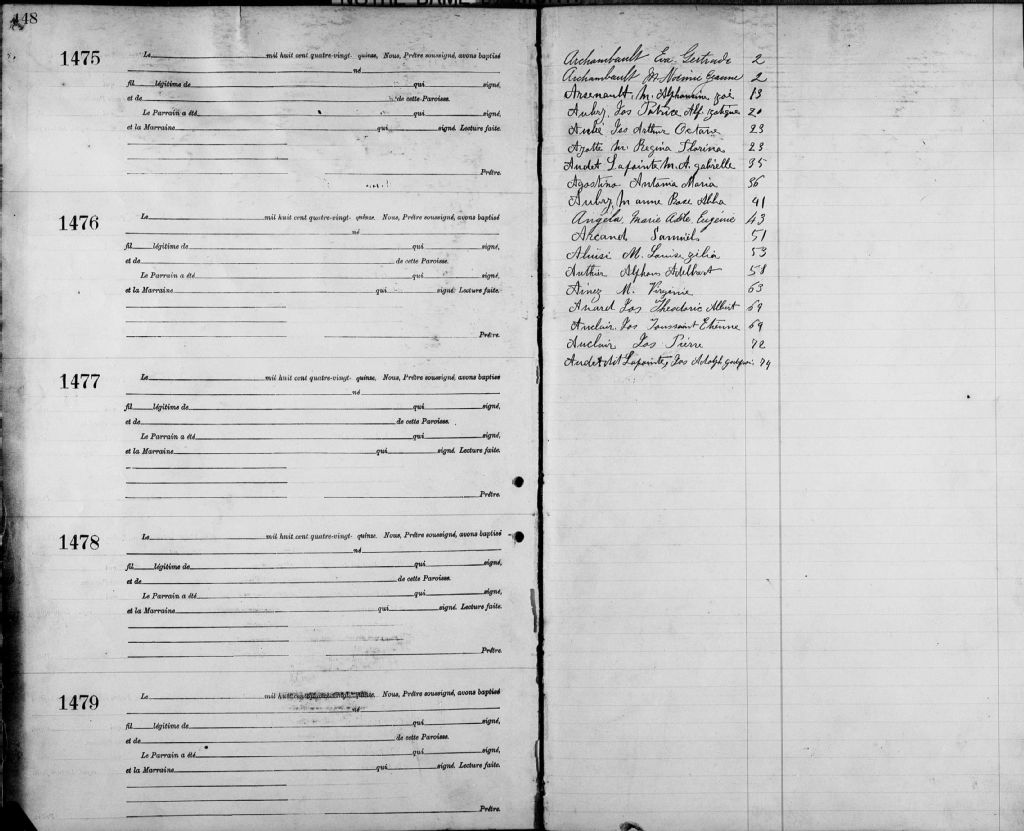 148
1475
Le mil huit cent quatre-vingt- quinze. Nous, Prêtre soussigné, avons baptisé
né
fil légitime de qui signé,
et de de cette Paroisse.
Le Parrain a été qui signé,
et la Marraine qui signé. Lecture faite.
Prêtre.
1476
Le mil huit cent quatre-vingt- quinze. Nous, Prêtre soussigné, avons baptisé
né
fil légitime de qui signé,
et de de cette Paroisse.
Le Parrain a été qui signé,
et la Marraine qui signé. Lecture faite.
Prêtre.
1477
Le mil huit cent quatre-vingt- quinze. Nous, Prêtre soussigné, avons baptisé
né
fil légitime de qui signé,
et de de cette Paroisse.
Le Parrain a été qui signé,
et la Marraine qui signé. Lecture faite.
Prêtre.
1478
Le mil huit cent quatre-vingt- quinze. Nous, Prêtre soussigné, avons baptisé
né
fil légitime de qui signé,
et de de cette Paroisse.
Le Parrain a été qui signé,
et la Marraine qui signé. Lecture faite.
Prêtre.
1479
Le mil huit quinze. Nous, Prêtre soussigné, avons baptisé
né
fil légitime de qui signé,
et de de cette Paroisse.
Le Parrain a été qui signé,
et la Marraine qui signé. Lecture faite.
Prêtre.
Archambault Eva Gertrude 2
Archambault M Noémie Jeanne 2
Arsenault, M. Alphonsine Zoé 13
Aubry, Jos Patrice Alf. 20
Aubé Jos Arthur Octave 23
Ayotte M. Regina Florina 23
Audet Lapointe M. A. gabrielle 35
Agostino Antonia Maria 36
Aubry, M anne Rose Alba 41
Angela, Marie Adèle Eugénie 43
Arcand Samuel 51
Aluisi M. Louise 53
Authier Alphons Adelbart 58
M. Virginie 63
Jos Théodoric Albert 69
Auclair, Jos Toussaint Etienne 69
Auclair Jos Pierre 72
Audet dit Lapointe, Jos Adolph 74